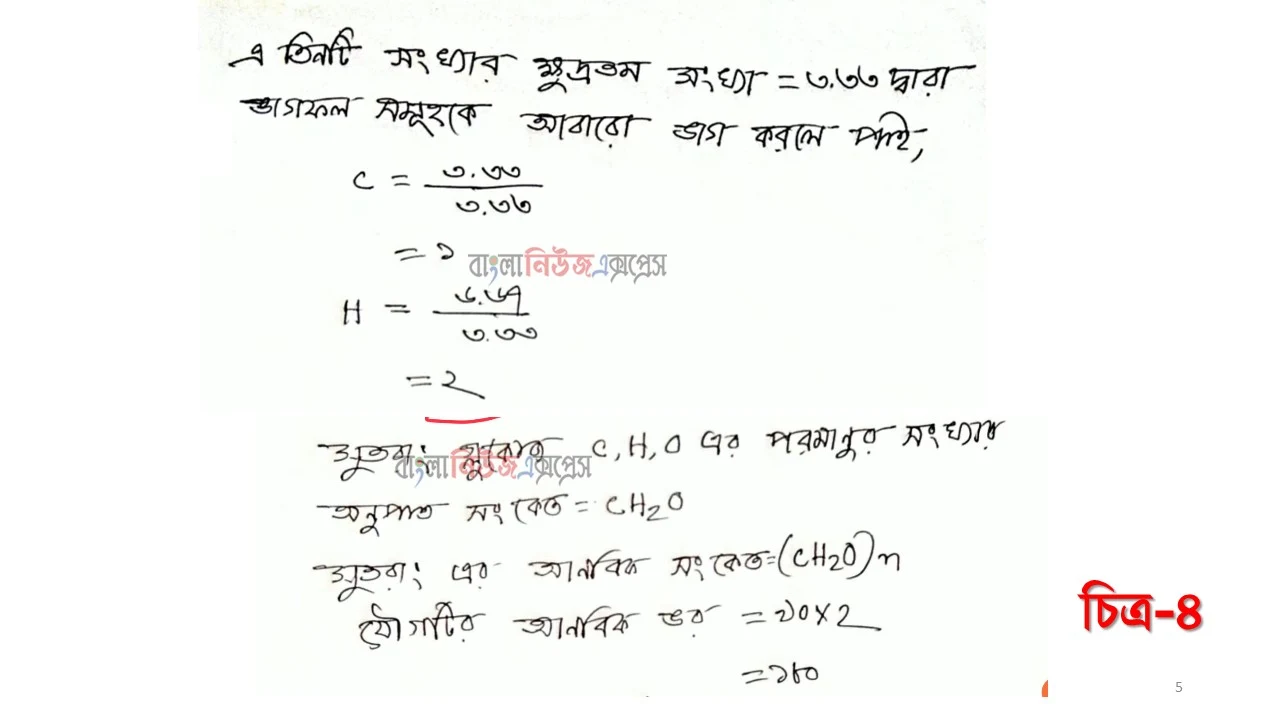 এ তিনটি সংখ্যার ক্ষুদ্রতম সংখ্যা = ৩.৩৩ দ্বারা
ভাগফল সমূহকে আবারো ভাগ করলে পাই,
C = ৩.৩৩
৩.৩৩
= ১
বাংলানিউজএক্সপ্রেস
H = ৬.৬৭
৩.৩৩
= ২
সুতরাং গ্লুকোজ C, H, O এর পরমানুর সংখ্যার
বাংলানিউজএক্সপ্রেস
অনুপাত সংকেত = CH2O
সুতরাং এর আনবিক সংকেত=(CH2O)n
যৌগটির আনবিক ভর = ৯০×2
= ১৮০
চিত্র-৪
5